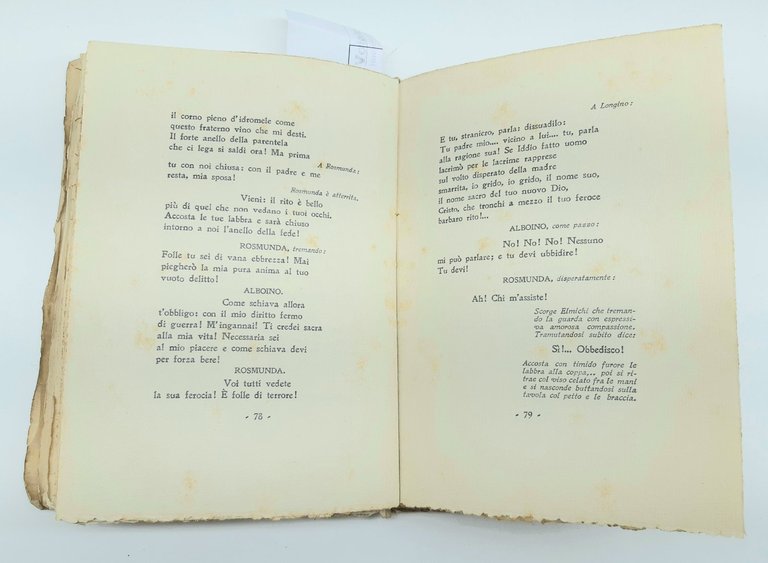 il corno pieno d'idromele come
questo fraterno vino che mi desti.
Il forte anello della parentela
che ci lega si saldi ora! Ma prima
A Rosmunda:
tu con noi chiusa: con il padre e me
resta, mia sposa!
Rosmunda è atterrita.
Vieni: il rito è bello
più di quel che non vedano i tuoi occhi.
Accosta le tue labbra e sarà chiuso
intorno a noi l'anello della fede!
ROSMUNDA, tremando:
Folle tu sei di vana ebbrezza! Mai
piegherò la mia pura anima al tuo
vuoto delitto!
ALBOINO.
Come schiava allora
t'obbligo: con il mio diritto fermo
di guerra! M'ingannai! Ti credei sacra
alla mia vita! Necessaria sei
al mio piacere e come schiava devi
per forza bere!
ROSMUNDA.
Voi tutti vedete
la sua ferocia! È folle di terrore!
- 78 -
A Longino:
E tu, straniero, parla; dissuadilo:
Tu padre mio.... vicino a lui.... tu, parla
alla ragione sua! Se Iddio fatto uomo
lacrimò per le lacrime rapprese
sul volto disperato della madre
smarrita, io grido, io grido, il nome suo,
il nome sacro del tuo nuovo Dio,
Cristo, che tronchi a mezzo il tuo feroce
barbaro rito!...
ALBOINO, come pazzo:
No! No! No! Nessuno
mi può parlare; e tu devi ubbidire!
Tu devi!
ROSMUNDA, disperatamente:
Ah! Chi m'assiste!
Scorge Elmichi che treman-
do la guarda con espressi-
va amorosa compassione.
Tramutandosi subito dice:
Sì!... Obbedisco!
Accosta con timido furore le
labbra alla coppa,... poi si ri-
trae col viso celato fra le mani
e si nasconde buttandosi sulla
tavola col petto e le braccia.
- 79 -